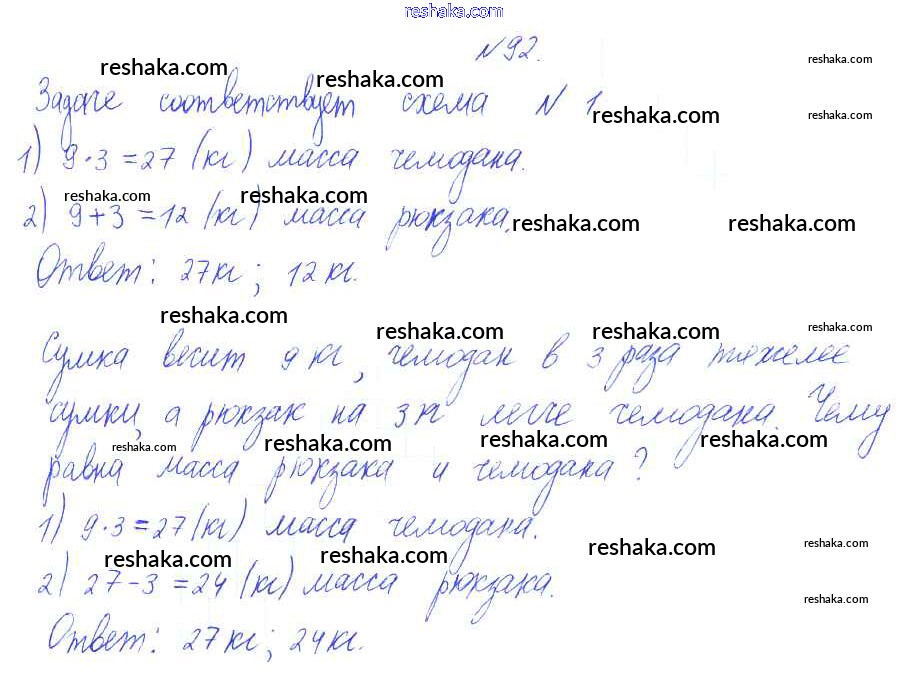 reshaka.com
№92.
reshaka.com reshaka.com reshaka.com
Задаче соответствует схема № 1
reshaka.com reshaka.com
1) 9·3=27 (кг) масса чемодана.
reshaka.com reshaka.com
2) 9+3=12 (кг) масса рюкзака.
reshaka.com reshaka.com
Ответ: 27кг; 12кг.
reshaka.com reshaka.com reshaka.com reshaka.com
Сумка весит 9 кг, чемодан в 3 раза тяжелее
сумки, а рюкзак на 3кг легче чемодана. Чему
reshaka.com reshaka.com reshaka.com reshaka.com
равна масса рюкзака и чемодана?
1) 9·3=27(кг) масса чемодана.
reshaka.com reshaka.com reshaka.com reshaka.com
2) 27-3=24 (кг) масса рюкзака.
reshaka.com
Ответ: 27кг; 24кг.